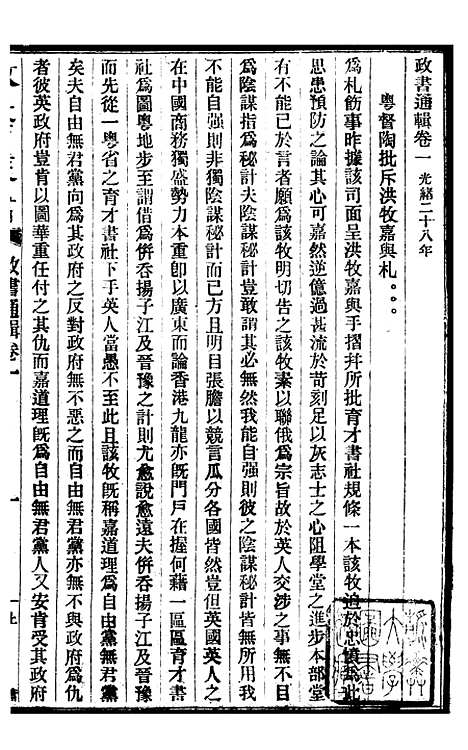 政書通輯卷一 光緒二十八年
粵督陶批斥洪牧嘉與札。。。
爲札飭事昨據該司面呈洪牧嘉與手摺幷所批育才書社規條一本該牧迫於忠憤爲此
思患預防之論其心可嘉然逆億過甚流於苛刻足以灰志士之心阻學堂之進步本部堂
有不能已於言者願爲該牧明切告之該牧素以聯俄爲宗旨故於英人交涉之事無不目
爲陰謀指爲秘計夫陰謀秘計豈敢謂其必無然我能自強則彼之陰謀秘計皆無所用我
不能自強則非獨陰謀秘計而已方且明目張膽以競言瓜分各國皆然豈但英國英人之
在中國商務獨盛勢力本重卽以廣東而論香港九龍亦旣門戶在握何藉一區區育才書
社爲圖粵地步至謂借爲併吞揚子江及晉豫之計則尤愈說愈遠夫併吞揚子江及晉豫
而先從一粵省之育才書社下手英人當愚不至此且該牧旣稱嘉道理爲自由無君黨
矣夫自由無君黨向爲其政府之反對政府無不惡之而自由無君黨亦無不與政府爲仇
者彼英政府豈肯以圖華重任付之其仇而嘉道理旣爲自由無君黨人又安肯受其政府
政書通輯卷一
一